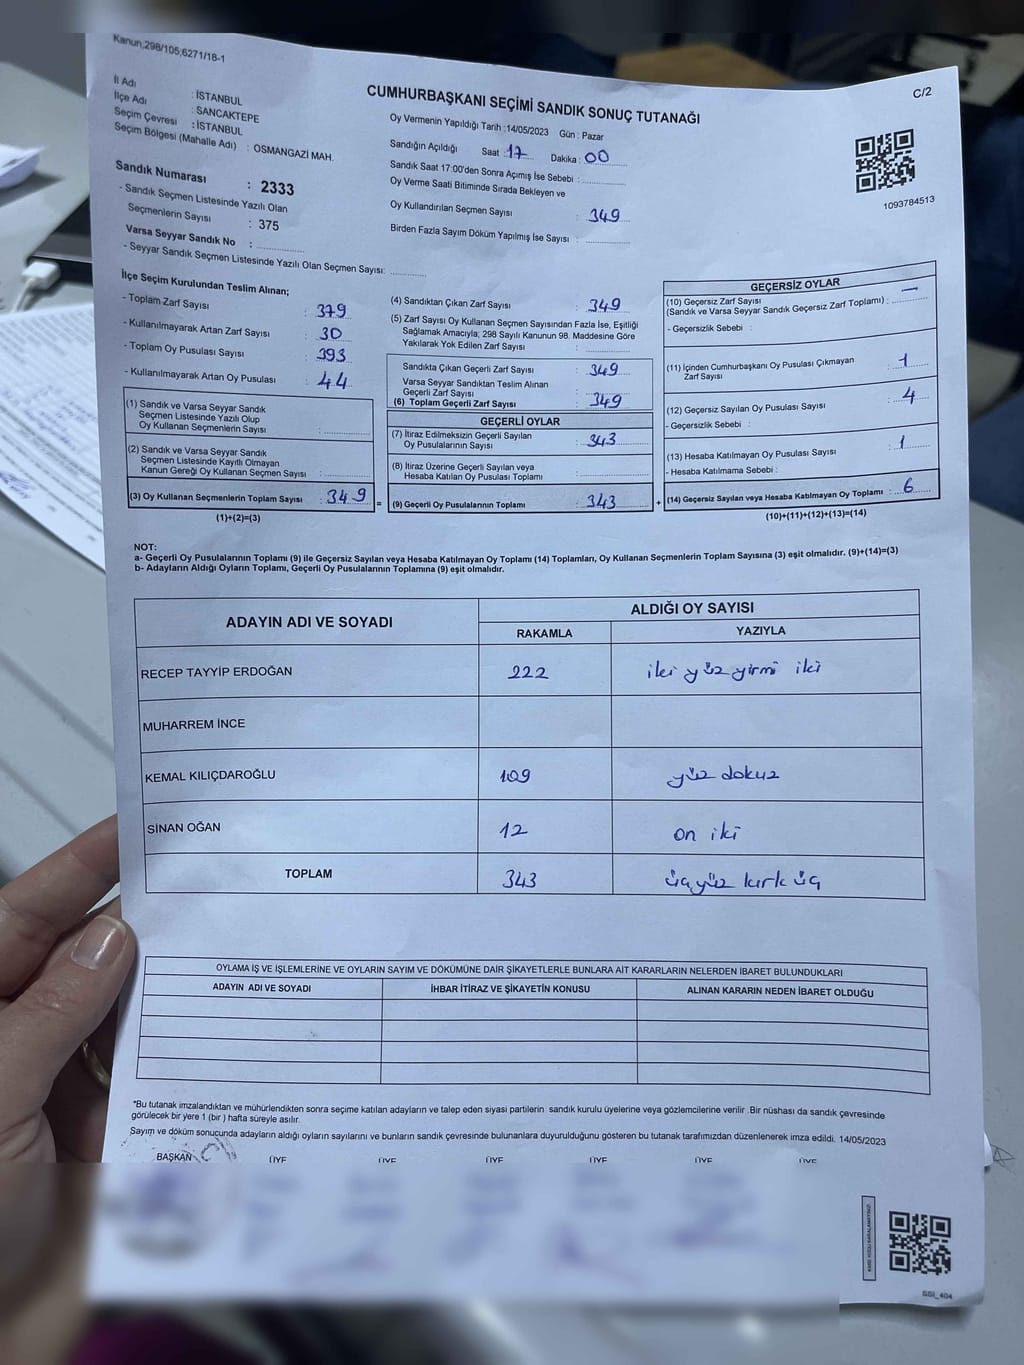 Kanun;298/105;6271/18-1
C/2
CUMHURBAŞKANI SEÇİMİ SANDIK SONUÇ TUTANAĞI
İl Adı : İSTANBUL
İlçe Adı : SANCAKTEPE
Seçim Çevresi : İSTANBUL
Seçim Bölgesi (Mahalle Adı) : OSMANGAZİ MAH.
Sandık Numarası : 2333
- Sandık Seçmen Listesinde Yazılı Olan
Seçmenlerin Sayısı : 375
Varsa Seyyar Sandık No :
- Seyyar Sandık Seçmen Listesinde Yazılı Olan Seçmen Sayısı:
Oy Vermenin Yapıldığı Tarih :14/05/2023 Gün : Pazar
Sandığın Açıldığı Saat 17 Dakika : 00
Sandık Saat 17:00'den Sonra Açımış İse Sebebi :
Oy Verme Saati Bitiminde Sırada Bekleyen ve
Oy Kullandırılan Seçmen Sayısı : 349
Birden Fazla Sayım Döküm Yapılmış İse Sayısı :
1093784513
İlçe Seçim Kurulundan Teslim Alınan;
- Toplam Zarf Sayısı : 379
- Kullanılmayarak Artan Zarf Sayısı : 30
- Toplam Oy Pusulası Sayısı : 393
- Kullanılmayarak Artan Oy Pusulası : 44
(1) Sandık ve Varsa Seyyar Sandık
Seçmen Listesinde Yazılı Olup
Oy Kullanan Seçmenlerin Sayısı :
(2) Sandık ve Varsa Seyyar Sandık
Seçmen Listesinde Kayıtlı Olmayan
Kanun Gereği Oy Kullanan Seçmen Sayısı :
(3) Oy Kullanan Seçmenlerin Toplam Sayısı : 349 =
(1)+(2)=(3)
(4) Sandıktan Çıkan Zarf Sayısı : 349
(5) Zarf Sayısı Oy Kullanan Seçmen Sayısından Fazla İse, Eşitliği
Sağlamak Amacıyla; 298 Sayılı Kanunun 98. Maddesine Göre
Yakılarak Yok Edilen Zarf Sayısı :
Sandıkta Çıkan Geçerli Zarf Sayısı : 349
Varsa Seyyar Sandıktan Teslim Alınan
Geçerli Zarf Sayısı :
(6) Toplam Geçerli Zarf Sayısı : 349
GEÇERLİ OYLAR
(7) İtiraz Edilmeksizin Geçerli Sayılan
Oy Pusulalarının Sayısı : 343
(8) İtiraz Üzerine Geçerli Sayılan veya
Hesaba Katılan Oy Pusulası Toplamı :
(9) Geçerli Oy Pusulalarının Toplamı : 343 +
GEÇERSİZ OYLAR
(10) Geçersiz Zarf Sayısı
(Sandık ve Varsa Seyyar Sandık Geçersiz Zarf Toplamı) : —
- Geçersizlik Sebebi :
(11) İçinden Cumhurbaşkanı Oy Pusulası Çıkmayan
Zarf Sayısı : 1
(12) Geçersiz Sayılan Oy Pusulası Sayısı : 4
- Geçersizlik Sebebi :
(13) Hesaba Katılmayan Oy Pusulası Sayısı : 1
- Hesaba Katılmama Sebebi :
(14) Geçersiz Sayılan veya Hesaba Katılmayan Oy Toplamı : 6
(10)+(11)+(12)+(13)=(14)
NOT:
a- Geçerli Oy Pusulalarının Toplamı (9) ile Geçersiz Sayılan veya Hesaba Katılmayan Oy Toplamı (14) Toplamları, Oy Kullanan Seçmenlerin Toplam Sayısına (3) eşit olmalıdır. (9)+(14)=(3)
b- Adayların Aldığı Oyların Toplamı, Geçerli Oy Pusulalarının Toplamına (9) eşit olmalıdır.
ADAYIN ADI VE SOYADI ALDIĞI OY SAYISI
RAKAMLA YAZIYLA
RECEP TAYYİP ERDOĞAN 222 iki yüz yirmi iki
MUHARREM İNCE
KEMAL KILIÇDAROĞLU 109 yüz dokuz
SİNAN OĞAN 12 on iki
TOPLAM 343 üçyüz kırk üç
OYLAMA İŞ VE İŞLEMLERİNE VE OYLARIN SAYIM VE DÖKÜMÜNE DAİR ŞİKAYETLERLE BUNLARA AİT KARARLARIN NELERDEN İBARET BULUNDUKLARI
ADAYIN ADI VE SOYADI İHBAR İTİRAZ VE ŞİKAYETİN KONUSU ALINAN KARARIN NEDEN İBARET OLDUĞU
*Bu tutanak imzalandıktan ve mühürlendikten sonra seçime katılan adayların ve talep eden siyasi partilerin sandık kurulu üyelerine veya gözlemcilerine verilir .Bir nüshası da sandık çevresinde
görülecek bir yere 1 (bir ) hafta süreyle asılır.
Sayım ve döküm sonucunda adayların aldığı oyların sayılarını ve bunların sandık çevresinde bulunanlara duyurulduğunu gösteren bu tutanak tarafımızdan düzenlenerek imza edildi. 14/05/2023
BAŞKAN ÜYE ÜYE ÜYE ÜYE ÜYE ÜYE
SSI_404